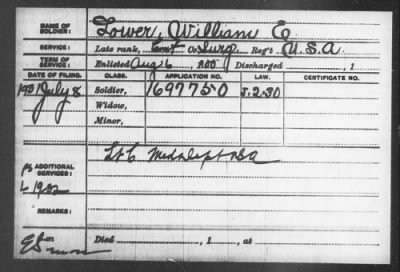 NAME OF SOLDIER: Tower, William E.
SERVICE: Late rank, Cont Co. Surg, Reg't U.S.A
TERM OF SERVICE: Enlisted Aug 6, 1 Discharged , 1
DATE OF FILING. CLASS. APPLICATION NO. LAW. CERTIFICATE NO.
July 8 Soldier, 1697750 J.2.30
Widow,
Minor,
ADDITIONAL SERVICES: Lt C Med Dept USA
REMARKS:
Died , 1 , at